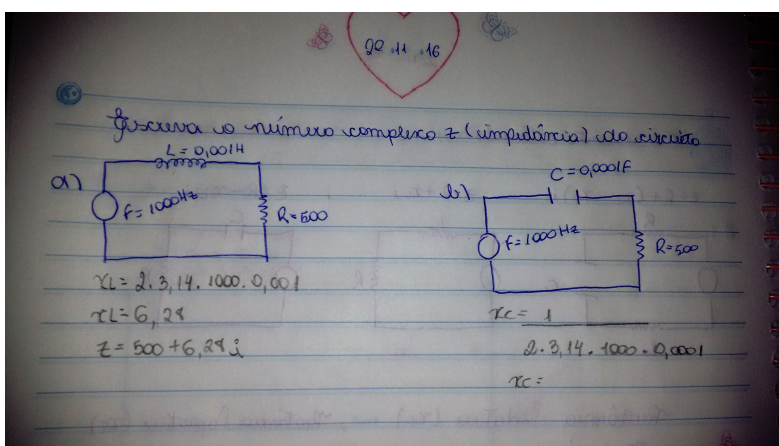 20.11.16
Escreva o número complexo z (impedância) do circuito
a)
L = 0,001H
F = 1000Hz
R = 500
xL = 2.3,14.1000.0,001
xL = 6,28
z = 500 + 6,28i
b)
C = 0,0001F
F = 1000Hz
R = 500
xc = 1
2.3,14.1000.0,0001
xc =